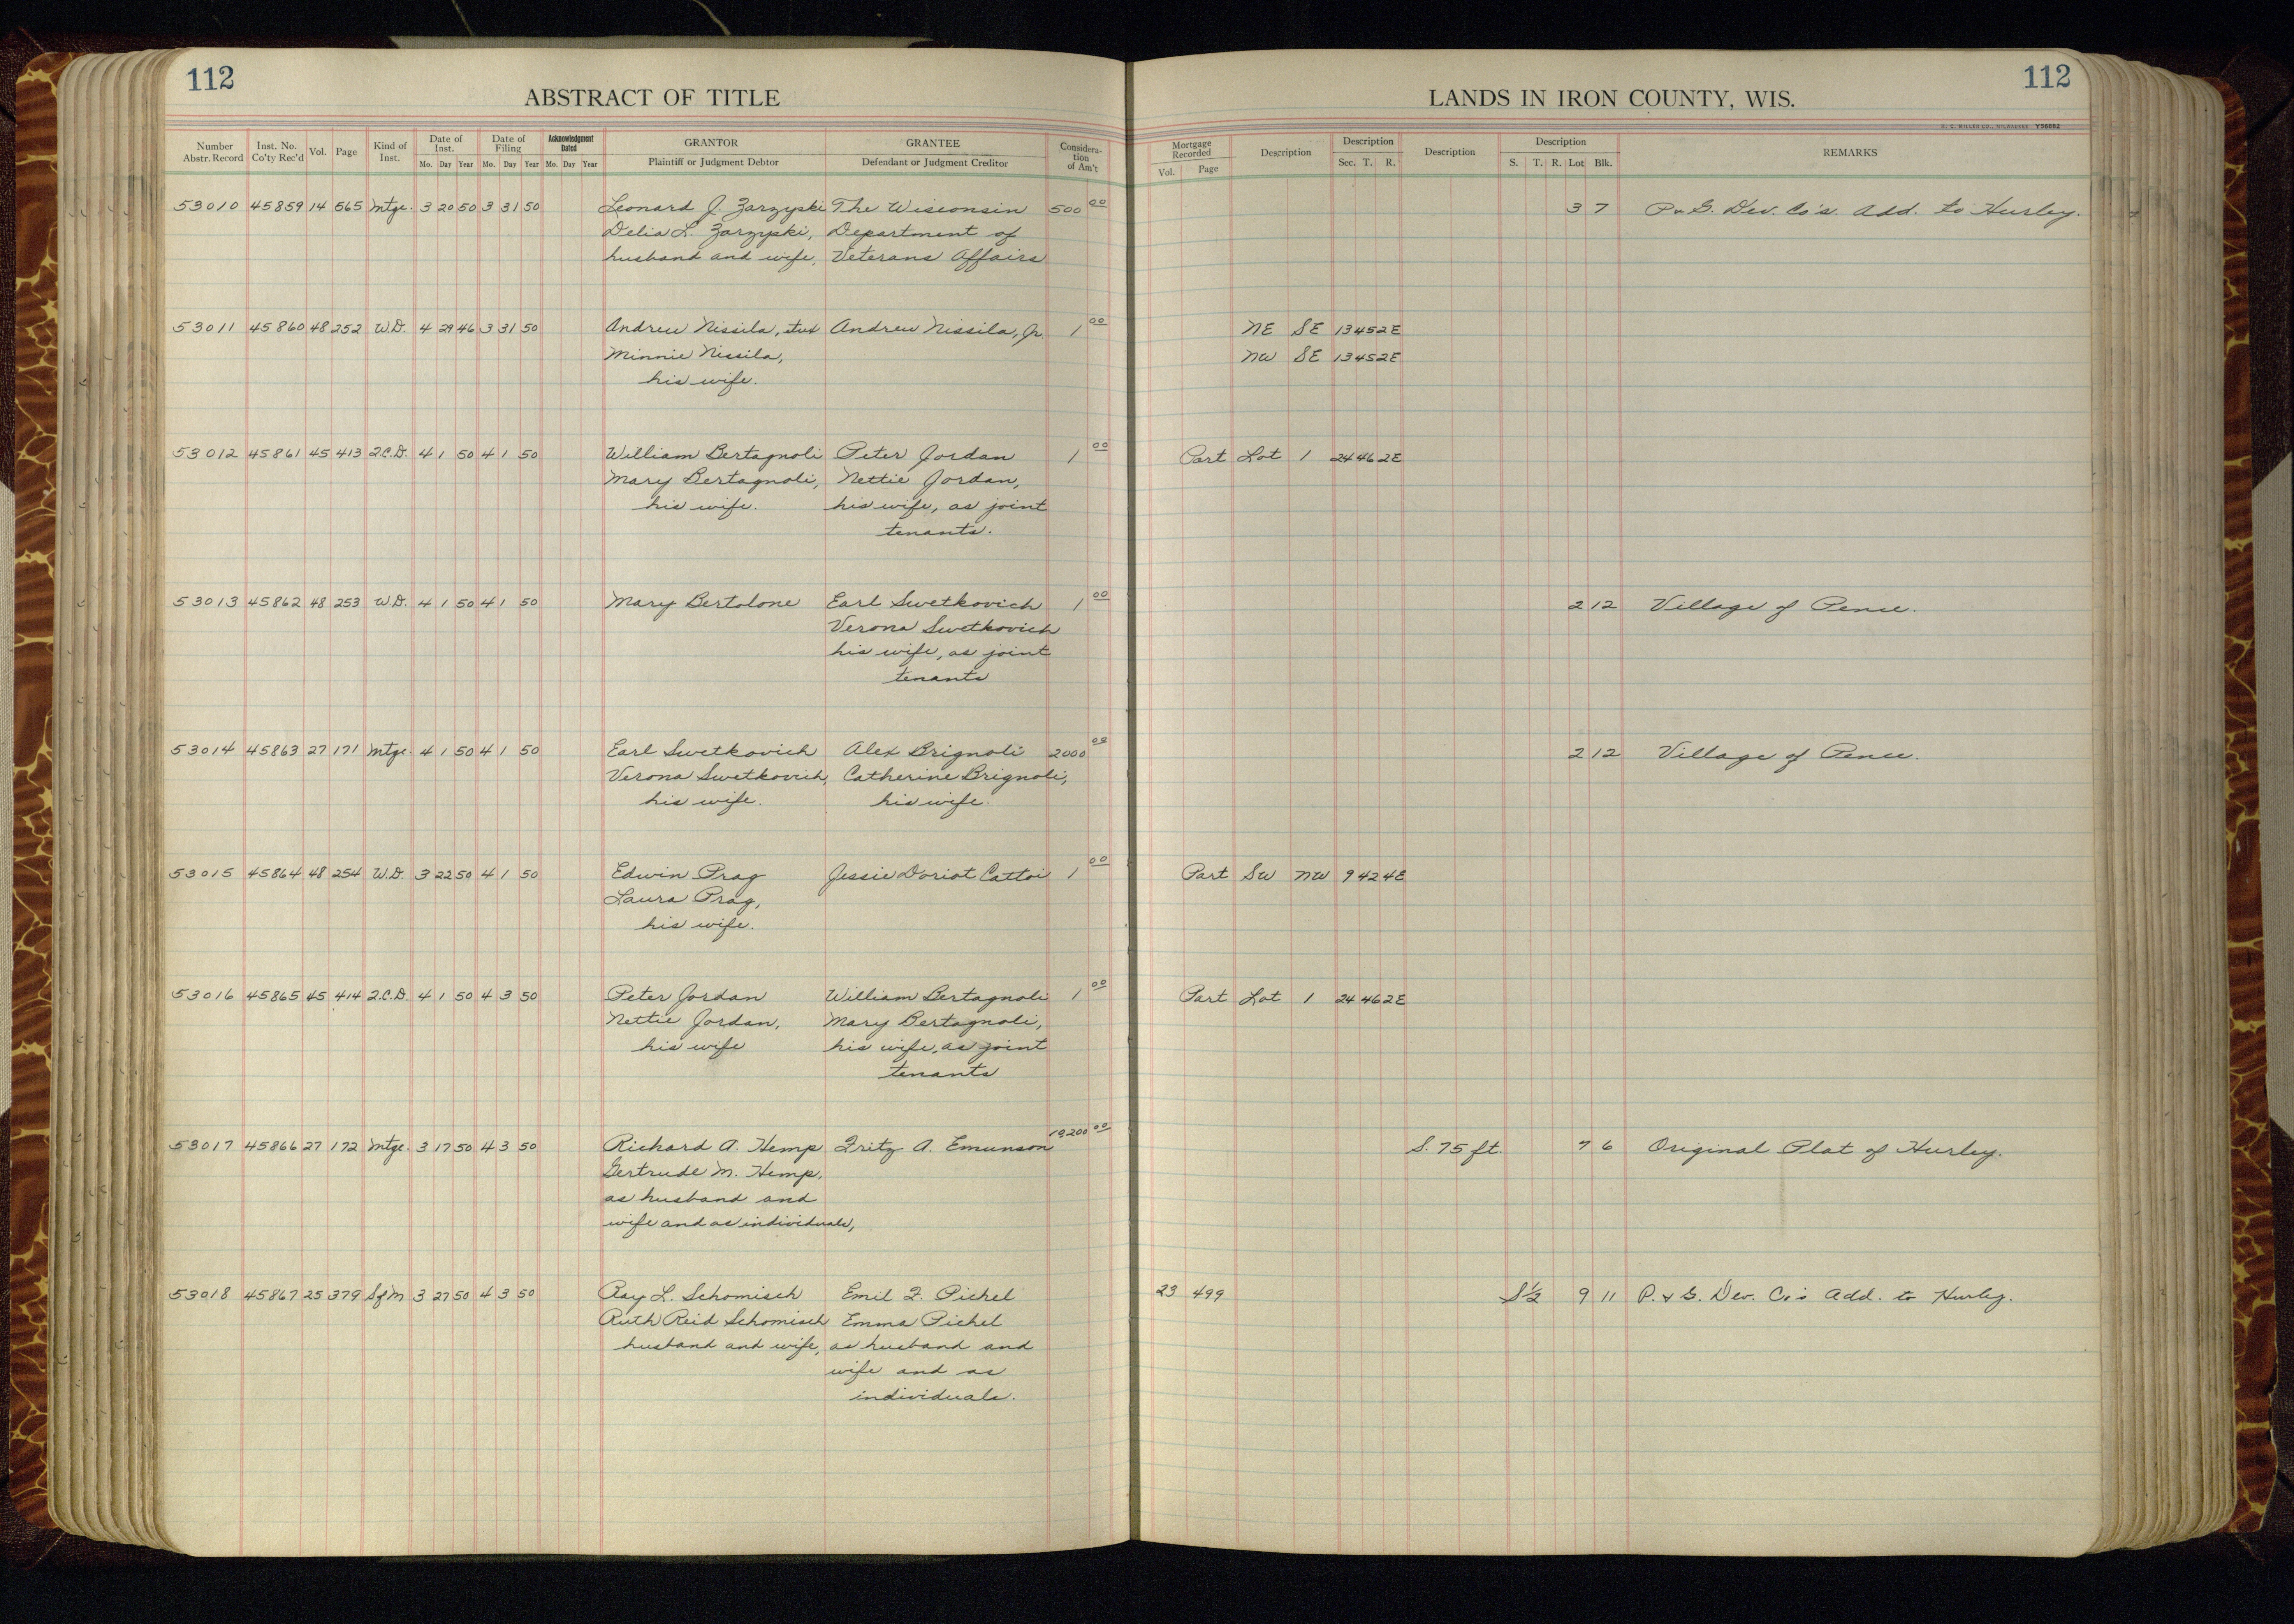 112
ABSTRACT OF TITLE
LANDS IN IRON COUNTY, WIS.
112
H. C. MILLER CO., MILWAUKEE Y56882
Number Abstr. Record Inst. No. Co'ty Rec'd Vol. Page Kind of Inst. Date of Inst. Mo. Day Year Date of Filing Mo. Day Year Acknowledgment Dated Mo. Day Year GRANTOR Plaintiff or Judgment Debtor GRANTEE Defendant or Judgment Creditor Considera-tion of Am't Mortgage Recorded Vol. Page Description Description Sec. T. R. Description Description S. T. R. Lot Blk. REMARKS
53010 45859 14 565 Mtge. 3 20 50 3 31 50 Leonard J. Zarzyski The Wisconsin 500 00 3 7 P. & G. Dev. Co's. Add. to Hurley.
Delia L. Zarzyski, Department of
husband and wife, Veterans Affairs
53011 45860 48 252 W.D. 4 29 46 3 31 50 Andrew Nissila, et ux Andrew Nissila, Jr. 1 00 NE SE 13 45 2E
Minnie Nissila, NW SE 13 45 2E
his wife.
53012 45861 45 413 Q.C.D. 4 1 50 4 1 50 William Bertagnoli Peter Jordan 1 00 Part Lot 1 24 46 2E
Mary Bertagnoli, Nettie Jordan,
his wife. his wife, as joint
tenants.
53013 45862 48 253 W.D. 4 1 50 4 1 50 Mary Bertolone Earl Swetkovich 1 00 2 12 Village of Pence.
Verona Swetkovich
his wife, as joint
tenants
53014 45863 27 171 Mtge. 4 1 50 4 1 50 Earl Swetkovich Alex Brignoli 2000 00 2 12 Village of Pence.
Verona Swetkovich, Catherine Brignoli,
his wife. his wife.
53015 45864 48 254 W.D. 3 22 50 4 1 50 Edwin Prag Jessie Doriot Cattoi 1 00 Part SW NW 9 42 4E
Laura Prag,
his wife.
53016 45865 45 414 Q.C.D. 4 1 50 4 3 50 Peter Jordan William Bertagnoli 1 00 Part Lot 1 24 46 2E
Nettie Jordan, Mary Bertagnoli,
his wife his wife, as joint
tenants
53017 45866 27 172 Mtge. 3 17 50 4 3 50 Richard A. Hemp Fritz A. Emunson 10,200 00 S. 75 ft. 7 6 Original Plat of Hurley.
Gertrude M. Hemp,
as husband and
wife and as individuals,
53018 45867 25 379 SofM 3 27 50 4 3 50 Ray L. Schomisch Emil F. Pichel 23 499 S½ 9 11 P. & G. Dev. Co's Add. to Hurley.
Ruth Reid Schomisch Emma Pichel
husband and wife, as husband and
wife and as
individuals.